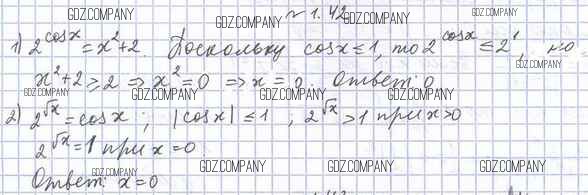 GDZ.COMPANY GDZ.COMPANY № 1.42 GDZ.COMPANY GDZ.COMPANY
1) 2^cosx = x²+2. Поскольку cosx ≤ 1, то 2^cosx ≤ 2¹, но
GDZ.COMPANY GDZ.COMPANY GDZ.COMPANY
x²+2 ≥ 2 ⇒ x² = 0 ⇒ x = 0. Ответ: 0
GDZ.COMPANY GDZ.COMPANY GDZ.COMPANY GDZ.COMPANY
2) 2^√x = cosx ; |cosx| ≤ 1 , 2^√x > 1 при x>0
2^√x = 1 при x = 0
GDZ.COMPANY GDZ.COMPANY GDZ.COMPANY GDZ.COMPANY
Ответ: x=0